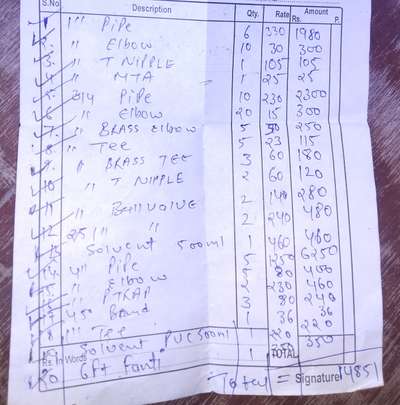 S.No. Description Qty. Rate Amount
Rs. P.
1. 1" Pipe 6 330 1980
2. " Elbow 10 30 300
3. " T NIPPLE 1 105 105
4. " MTA 1 25 25
5. 3/4 Pipe 10 230 2300
6. " Elbow 20 15 300
7. " BRASS Elbow 5 50 250
8. " Tee 5 23 115
9. " BRASS TEE 3 60 180
10. " T NIPPLE 2 60 120
11. " Ball Valve 2 140 280
12. " " 2 240 480
Solvent 500ml 1 460 460
14. 4" Pipe 5 1250 6250
15. " Elbow 5 80 400
" PTRAP 2 230 460
450 Band 3 80 240
" Tee 1 36 36
Solvent PVC 500ml 220 220
20 6ft fanti 1 350 350
Rs. In Words TOTAL
Total = 14851
Signature